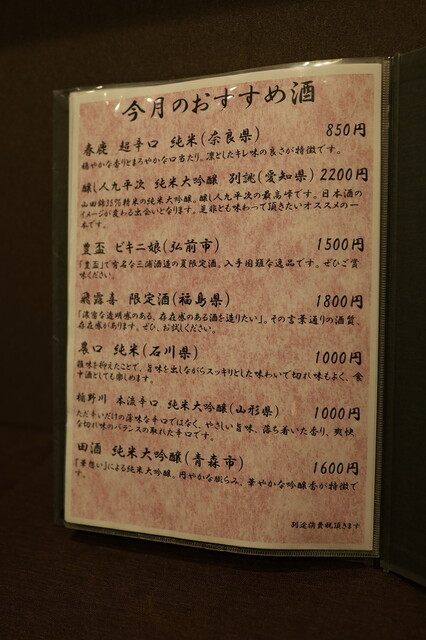 今月のおすすめ酒
春鹿 超辛口 純米(奈良県) 850円
穏やかな香りとまろやかな口当たり、凛としたキレ味の良さが特徴です。
醸し人九平次 純米大吟醸 別誂(愛知県) 2200円
山田錦35%精米の純米大吟醸。醸し人九平次の最高峰です。日本酒の
イメージが変わる出会いとなります。是非とも味わって頂きたいオススメの一
本です。
豊盃 ビキニ娘(弘前市) 1500円
「豊盃」で有名な三浦酒造の夏限定酒。入手困難な逸品です。ぜひご賞
味ください。
飛露喜 限定酒(福島県) 1800円
「濃密な透明感のある、存在感のある酒を造りたい」。その言葉通りの酒質、
存在感があります。ぜひ、お試しください。
農口 純米(石川県) 1000円
雑味を抑えたことで、旨味を出しながらスッキリとした味わいで切れ味もよく、食
中酒としても楽しめます。
楯野川 本流辛口 純米大吟醸(山形県) 1000円
ただ辛いだけの薄味な辛口ではなく、やさしい旨味、落ち着いた香り、爽快
な切れ味のバランスの取れた辛口です。
田酒 純米大吟醸(青森市) 1600円
「華想い」による純米大吟醸。円やかな膨らみ、華やかな吟醸香が特徴で
す。
別途消費税頂きます